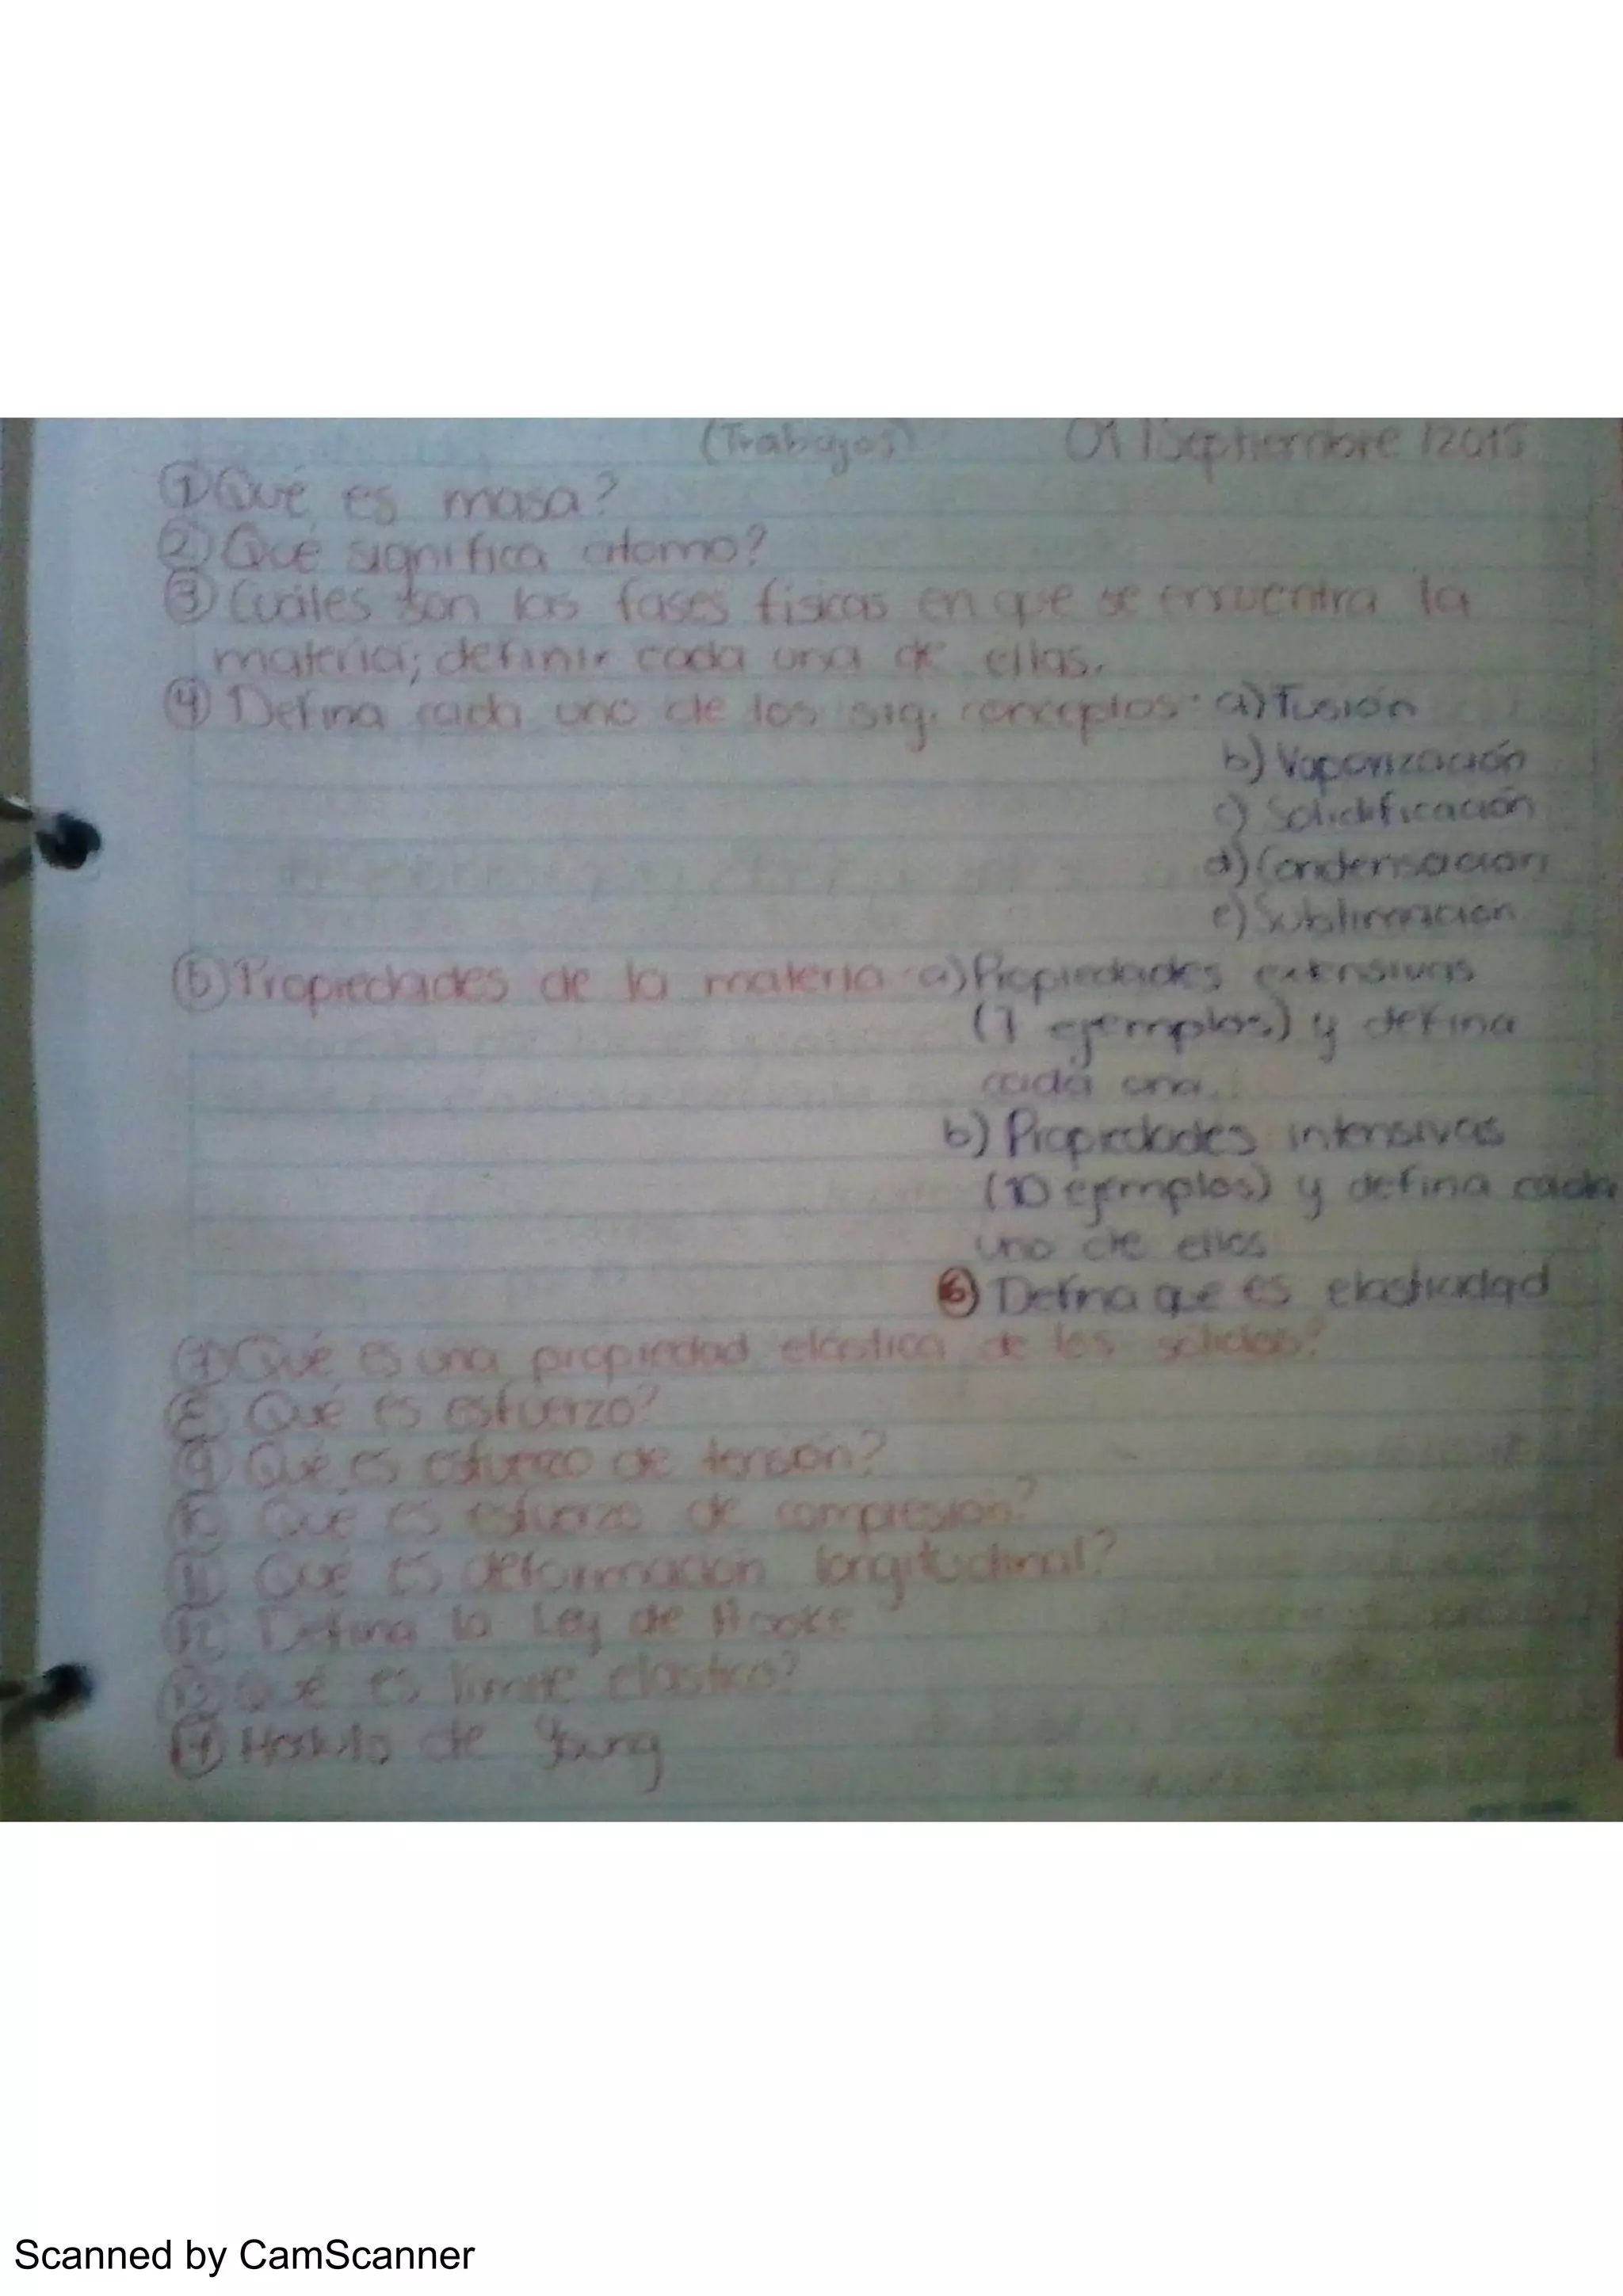 (Trabajos) 01/Septiembre/2015
① Qué es masa?
② Qué significa átomo?
③ Cuáles son las fases físicas en que se encuentra la
materia; definir cada una de ellas.
④ Defina cada uno de los sig. conceptos: a) Fusión
b) Vaporización
c) Solidificación
d) Condensación
e) Sublimación
⑤ Propiedades de la materia a) Propiedades extensivas
(7 ejemplos) y defina
cada una.
b) Propiedades intensivas
(10 ejemplos) y defina cada
uno de ellos
⑥ Defina que es elasticidad
⑦ Qué es una propiedad elástica de los sólidos?
⑧ Qué es esfuerzo?
⑨ Qué es esfuerzo de tensión?
⑩ Qué es esfuerzo de compresión?
⑪ Qué es deformación longitudinal?
⑫ Defina la Ley de Hooke
⑬ Qué es límite elástico?
⑭ Módulo de Young
Scanned by CamScanner